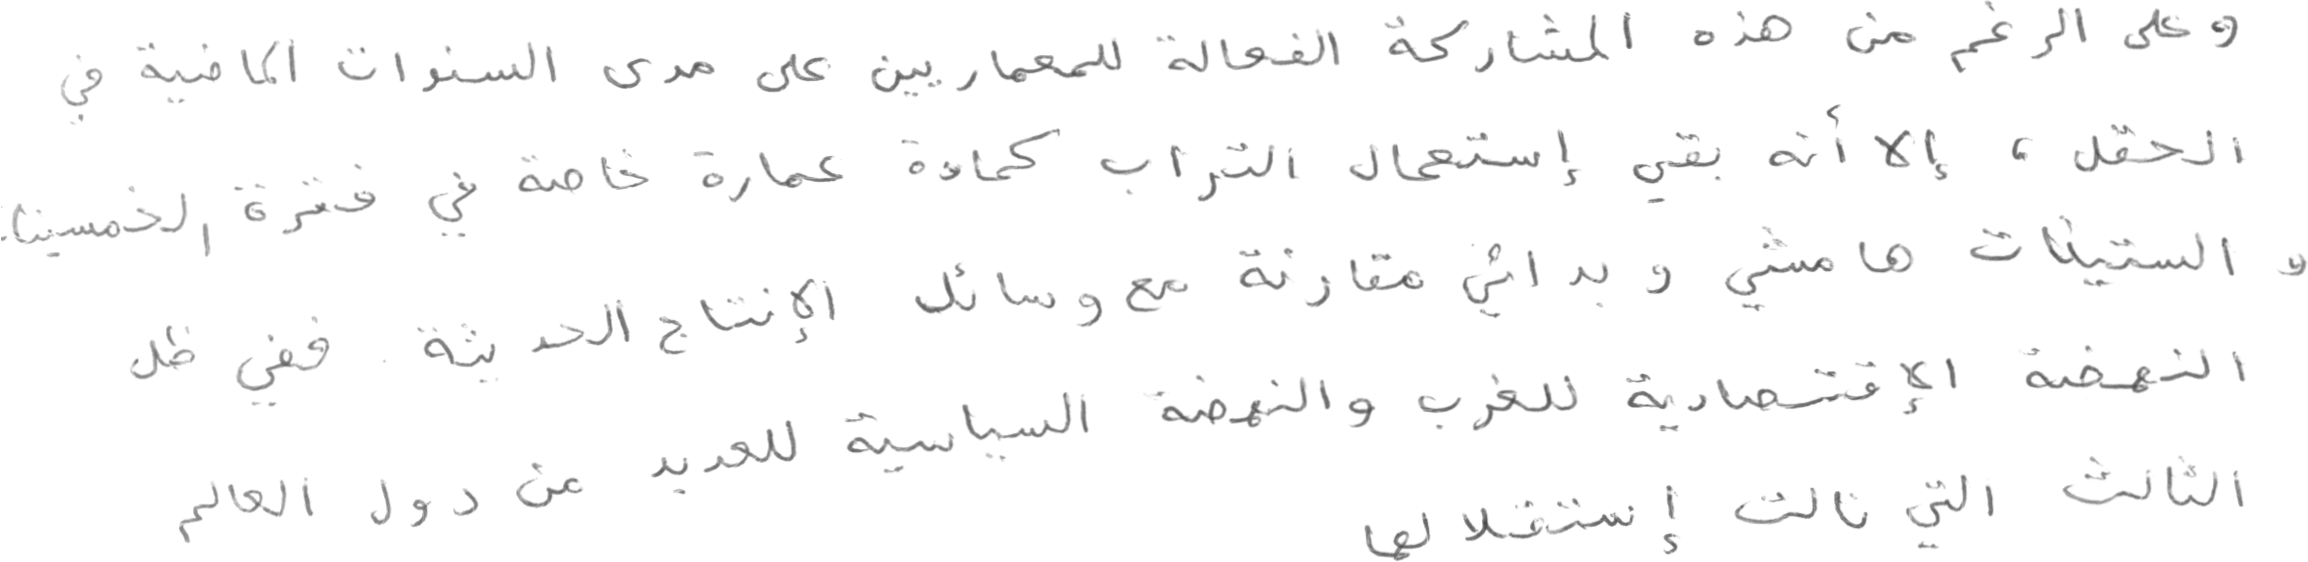 وعلى الرغم من هذه المشاركة الفعالة للمعماريين على مدى السنوات الماضية في
الحقل ، إلا أنه بقي إستعمال التراب كمادة عمارة خاصة في فترة الخمسينات
و الستينات هامشي و بدائي مقارنة مع وسائل الإنتاج الحديثة . ففي ظل
النهضة الإقتصادية للغرب والنهضة السياسية للعديد من دول العالم
الثالث التي نالت إستقلالها